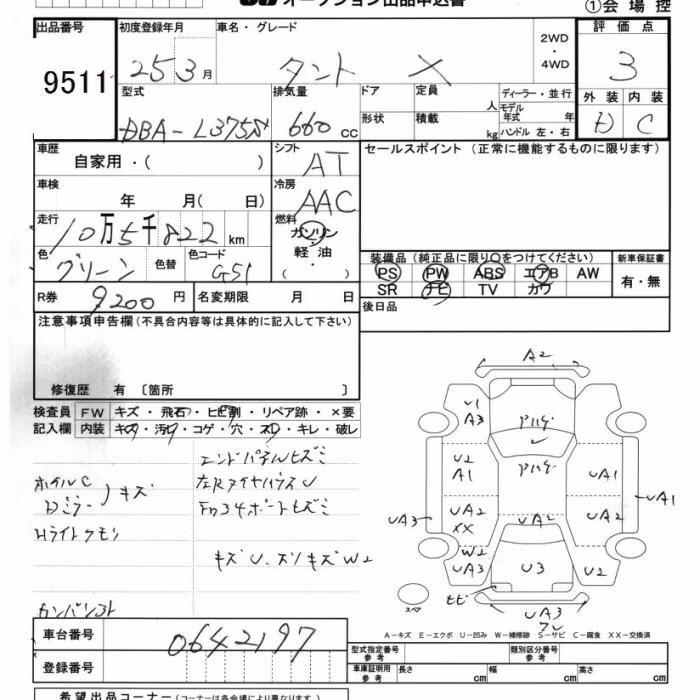 オークション出品申込書
①会場控
出品番号 9511
初度登録年月 25 3月
車名・グレード タント X
2WD・4WD
評価点 3
外装 D 内装 C
型式 DBA-L375S
排気量 660 cc
ドア
形状
定員 人
積載 kg
ディーラー・並行
モデル年式 年
ハンドル 左・右
車歴 自家用・( )
シフト AT
セールスポイント(正常に機能するものに限ります)
車検 年 月( 日)
冷房 AAC
走行 10万5千822 km
燃料 ガソリン 軽油 ・( )
色 グリーン 色替 色コード G51
装備品(純正品に限り○をつけてください) 新車保証書
PS PW ABS エアB AW 有・無
SR ナビ TV カワ
R券 9200 円 名変期限 月 日
後日品
注意事項申告欄(不具合内容等は具体的に記入して下さい)
修復歴 有 〔箇所 〕
検査員 FW キズ・飛石・ヒビ割・リペア跡・×要
記入欄 内装 キズ・汚れ・コゲ・穴・スレ・キレ・破レ
エンドパネルヒズミ
ホイルC
Dミラー )キズ
左Rタイヤハウス U
Hライトクモリ
キズ U.スリキズ W2
カンバン跡
A2
U1
A3
U2
A1
UA1
UA1
UA3
UA2
XX
UA2
UA2
W2
UA3
U3
U2
ヒビ
UA3
スペア
A-キズ E-エクボ U-凹み W-補修跡 S-サビ C-腐食 XX-交換済
車台番号 0642197
型式指定番号 参考
類別区分番号 参考
登録番号
車庫証明用 参考 長さ cm 幅 cm 高さ cm
希望出品コーナー(コーナーは各会場により異なります)